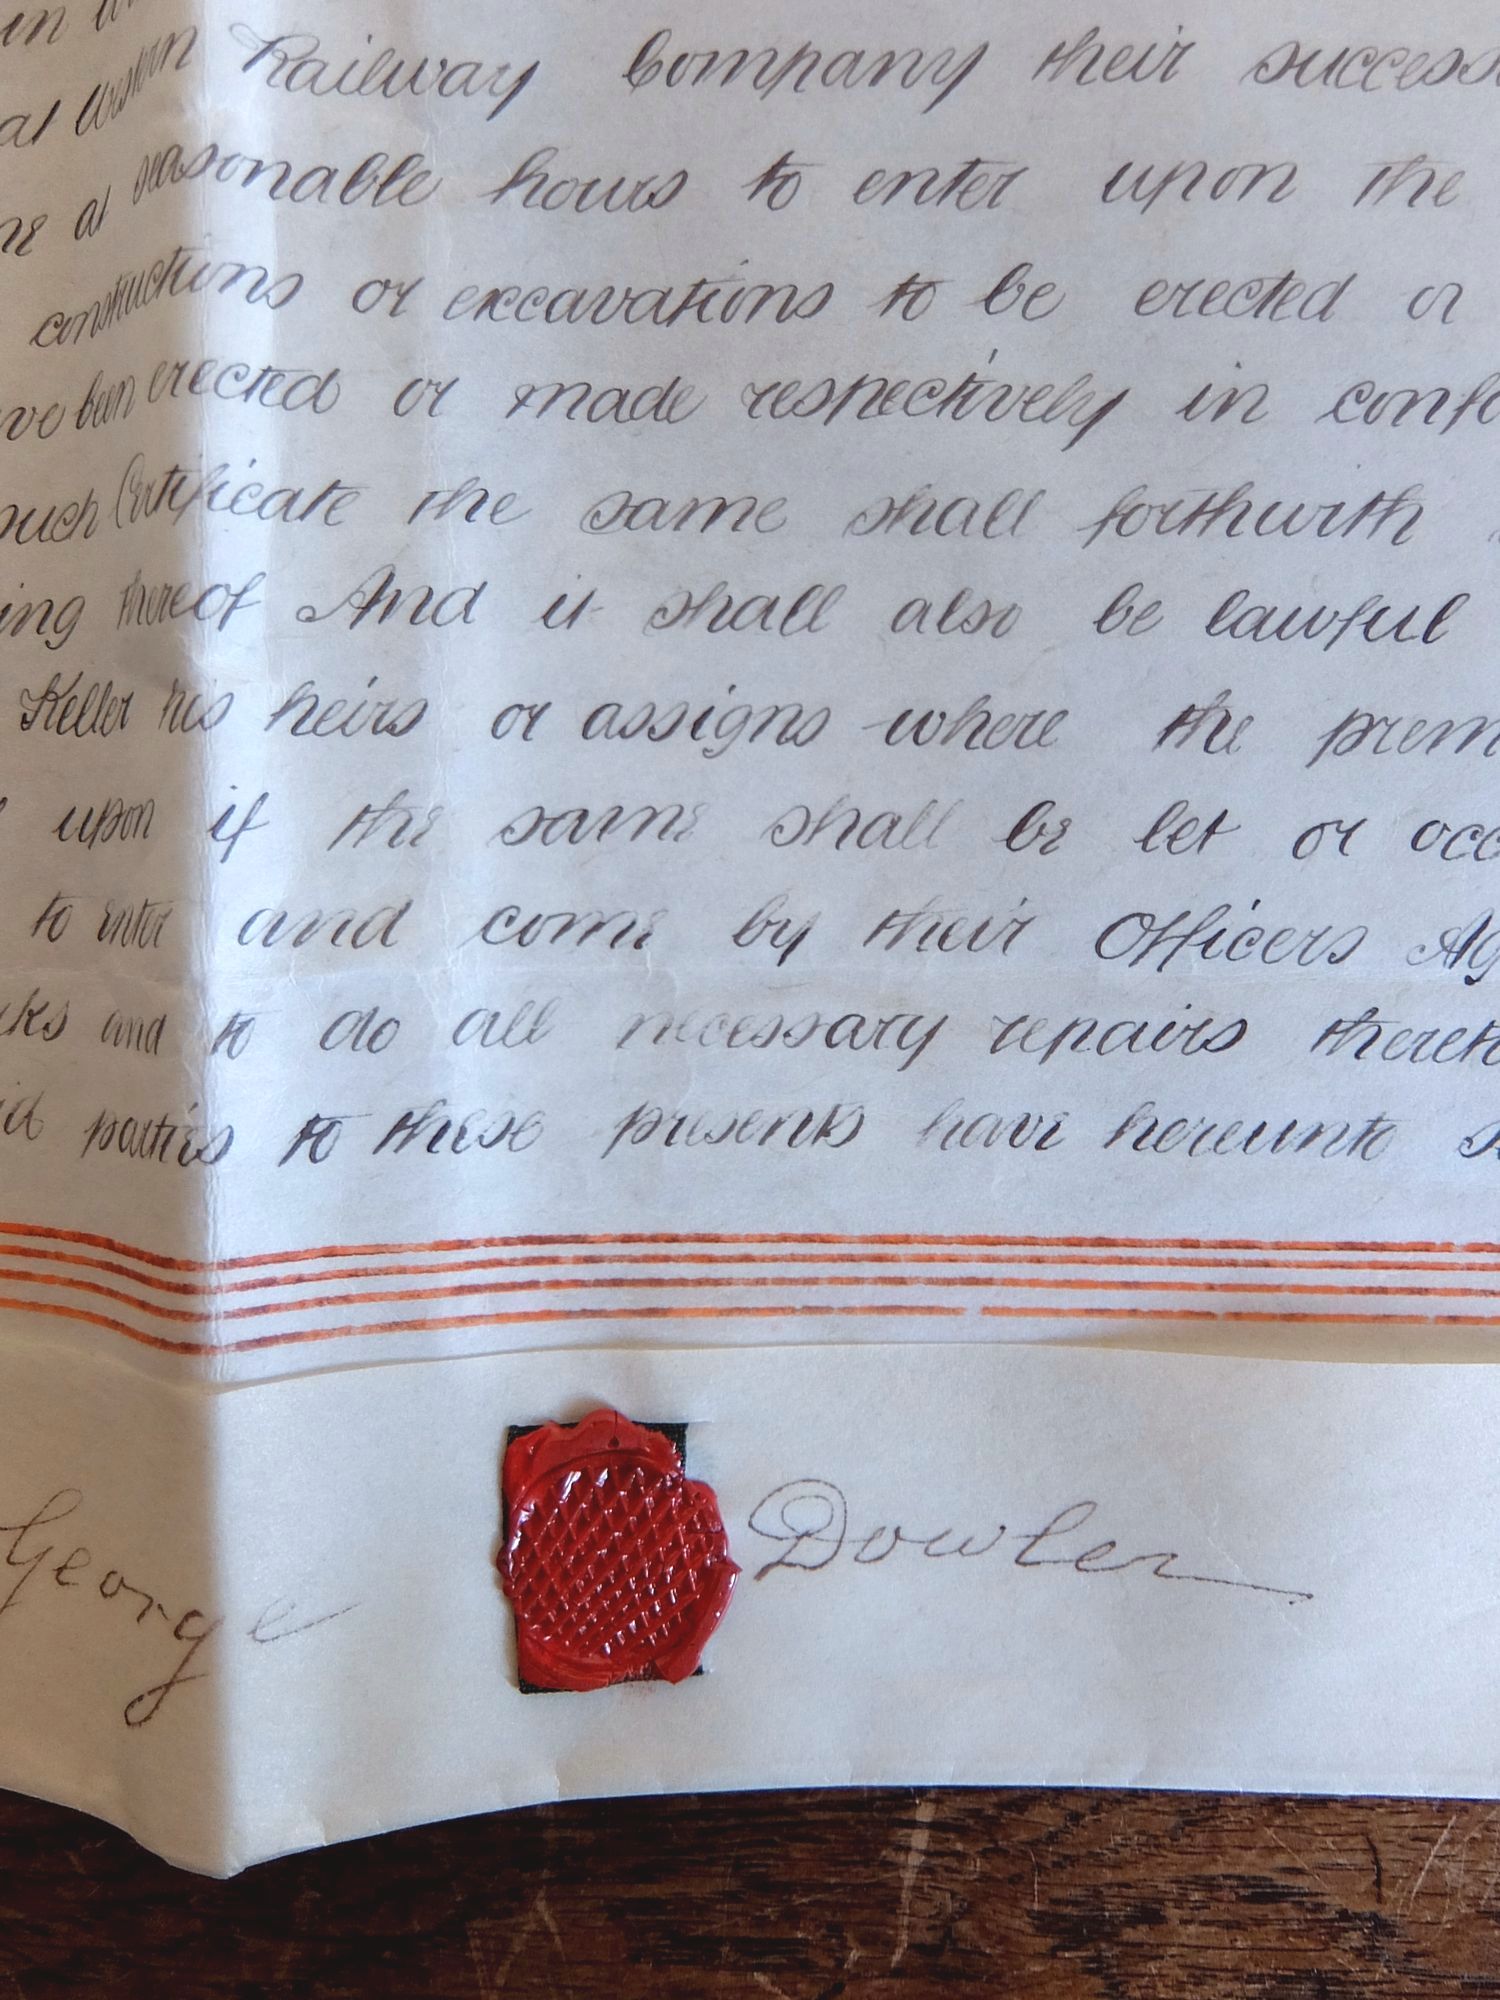 in
Western Railway Company their success
at reasonable hours to enter upon the
constructions or excavations to be erected or
ve been erected or made respectively in confo
such Certificate the same shall forthwith
ing thereof And it shall also be lawful
Keller his heirs or assigns where the prem
upon if the same shall be let or occ
to enter and come by their Officers Ag
ks and to do all necessary repairs thereto
id parties to these presents have hereunto s
George Dowler